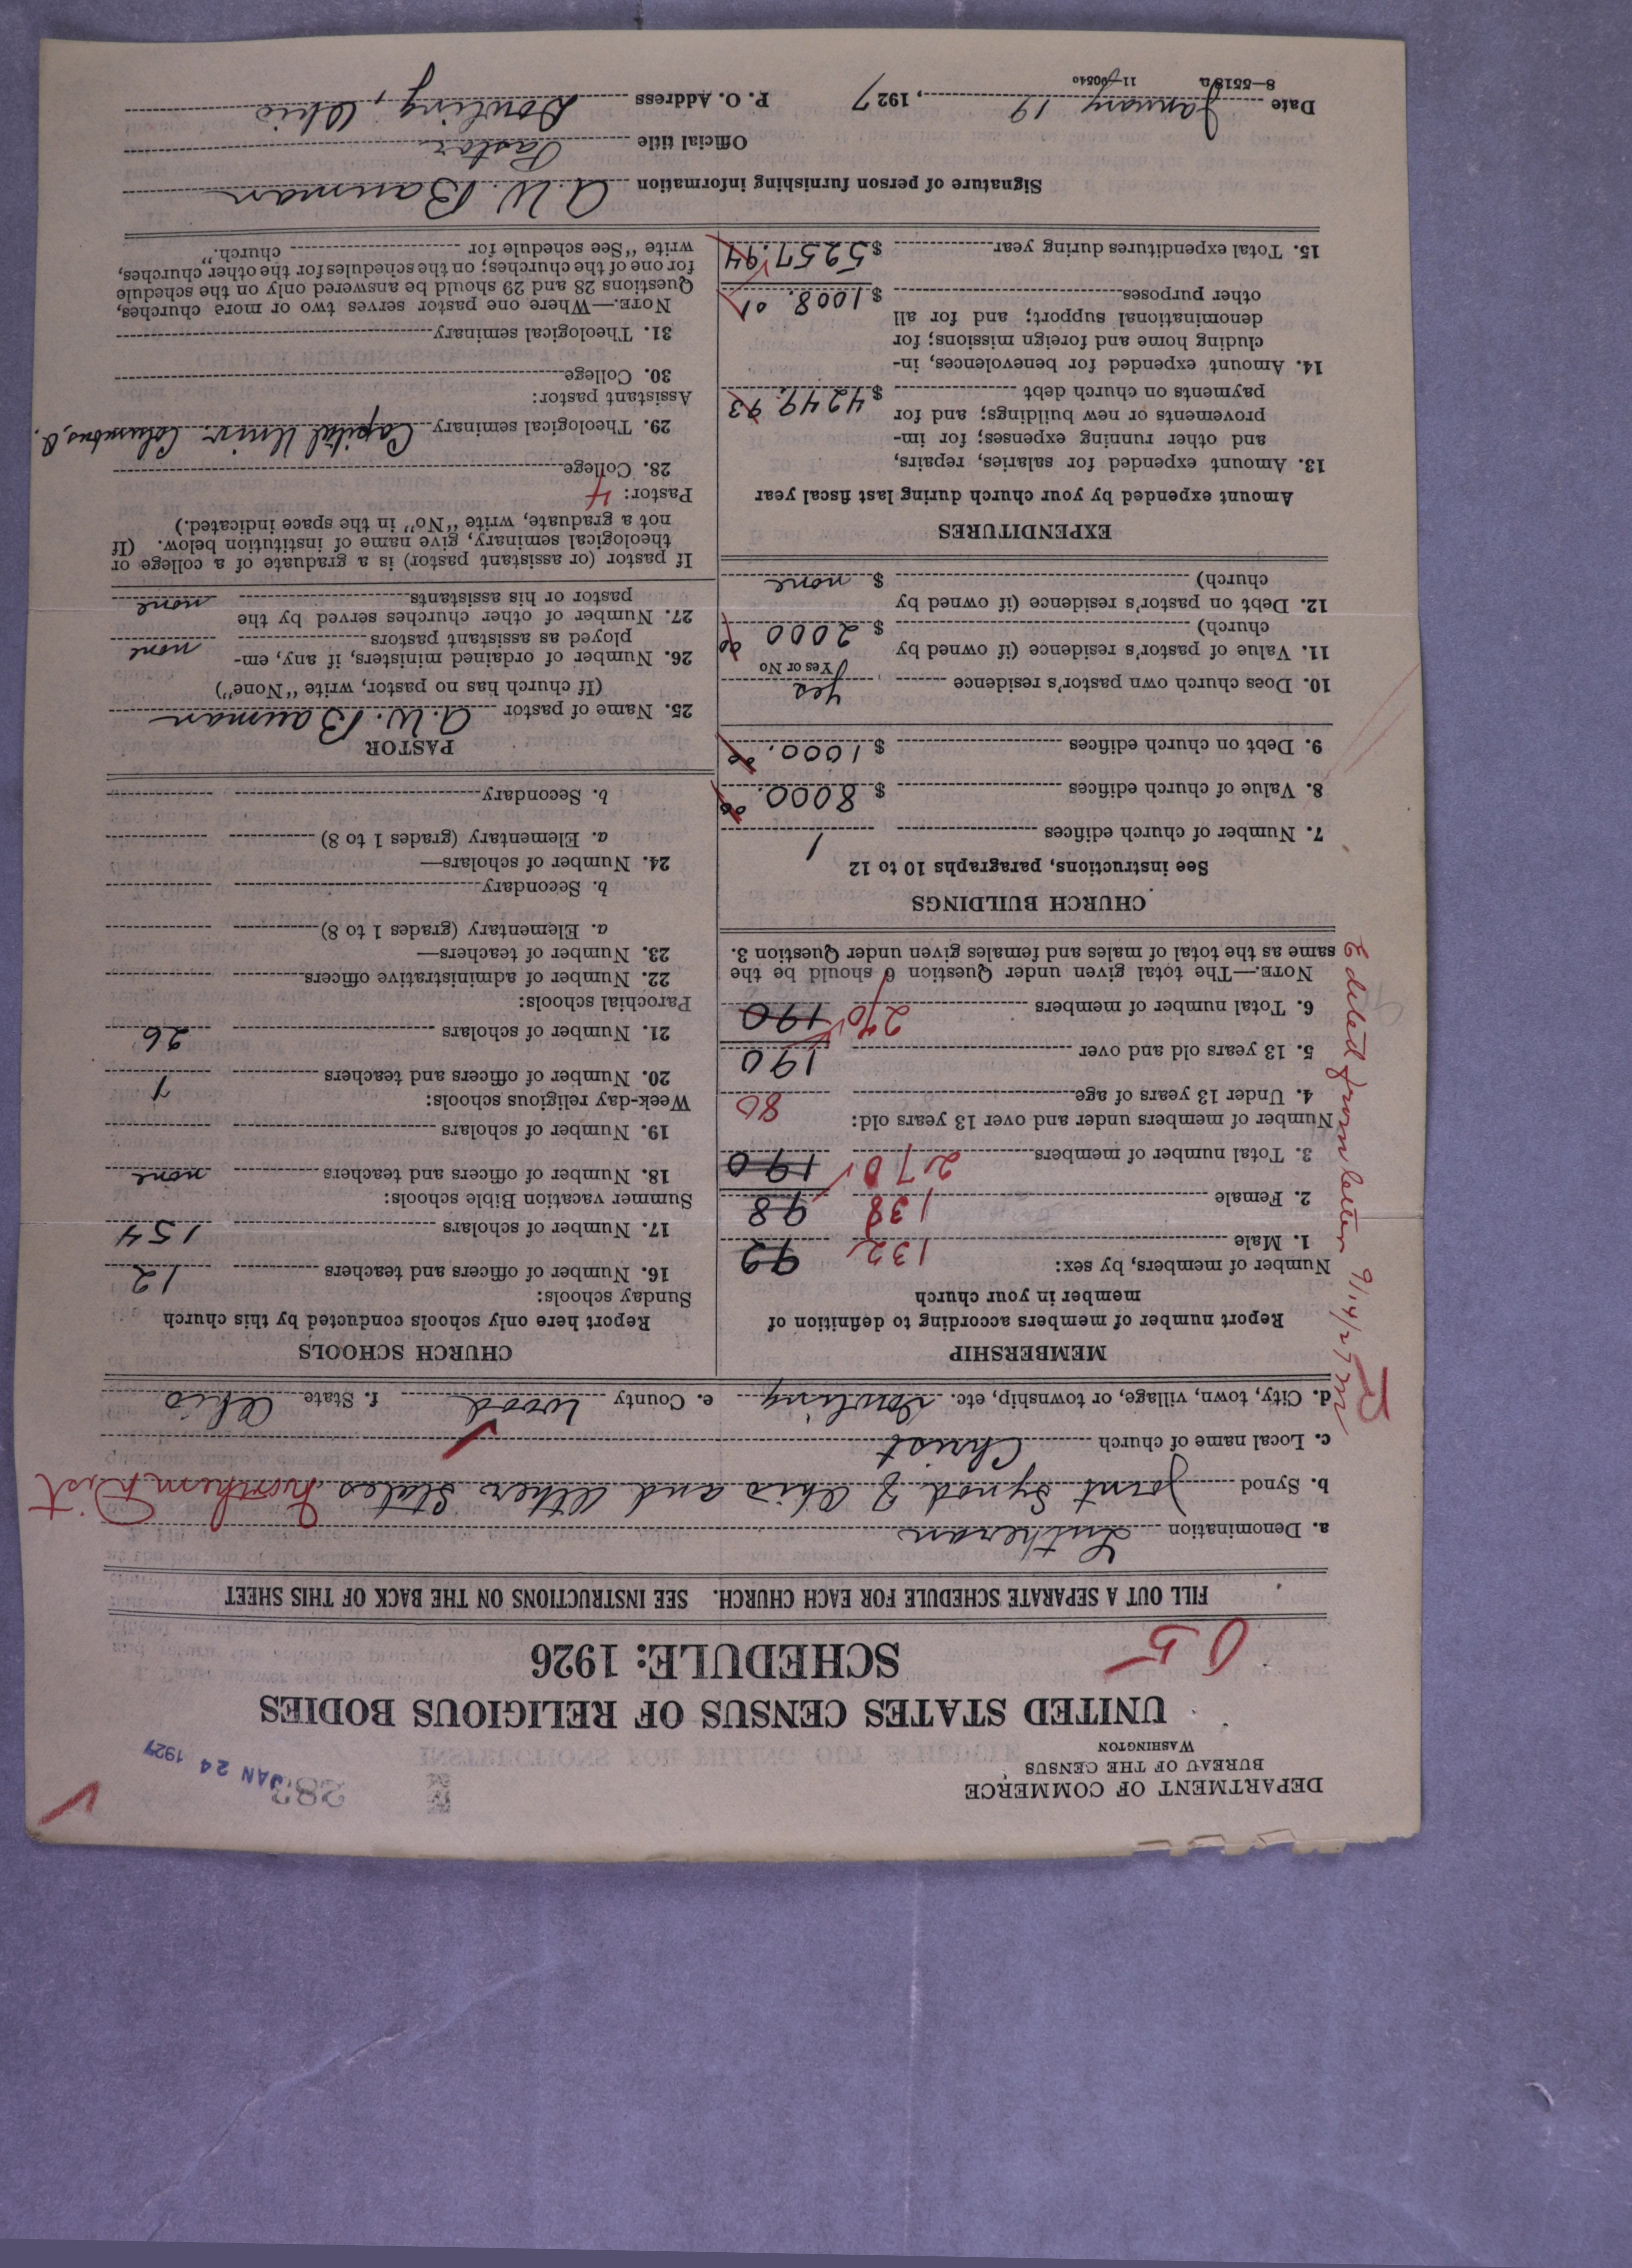 DEPARTMENT OF COMMERCE
BUREAU OF THE CENSUS
WASHINGTON
JAN 24 1927
UNITED STATES CENSUS OF RELIGIOUS BODIES
SCHEDULE: 1926
05
FILL OUT A SEPARATE SCHEDULE FOR EACH CHURCH. SEE INSTRUCTIONS ON THE BACK OF THIS SHEET
a. Denomination Lutheran
b. Synod Joint Synod of Ohio and Other States Northern Dist
c. Local name of church Christ
d. City, town, village, or township, etc. Dowling e. County Wood f. State Ohio
MEMBERSHIP
Report number of members according to definition of
member in your church
Number of members, by sex:
1. Male 132 92
2. Female 138 98
3. Total number of members 270 190
Number of members under and over 13 years old:
4. Under 13 years of age 80
5. 13 years old and over 190
6. Total number of members 270 190
NOTE.—The total given under Question 6 should be the
same as the total of males and females given under Question 3.
Edited from letter 9/14/27
CHURCH BUILDINGS
See instructions, paragraphs 10 to 12
7. Number of church edifices 1
8. Value of church edifices $ 8000.00
9. Debt on church edifices $ 1000.00
10. Does church own pastor's residence yes
Yes or No
11. Value of pastor's residence (if owned by
church) $ 2000 00
12. Debt on pastor's residence (if owned by
church) $ none
EXPENDITURES
Amount expended by your church during last fiscal year
13. Amount expended for salaries, repairs,
and other running expenses; for im-
provements or new buildings; and for
payments on church debt $ 4249.93
14. Amount expended for benevolences, in-
cluding home and foreign missions; for
denominational support; and for all
other purposes $ 1008.01
15. Total expenditures during year $ 5257.94
CHURCH SCHOOLS
Report here only schools conducted by this church
Sunday schools:
16. Number of officers and teachers 12
17. Number of scholars 154
Summer vacation Bible schools:
18. Number of officers and teachers none
19. Number of scholars
Week-day religious schools:
20. Number of officers and teachers 1
21. Number of scholars 26
Parochial schools:
22. Number of administrative officers
23. Number of teachers—
a. Elementary (grades 1 to 8)
b. Secondary
24. Number of scholars—
a. Elementary (grades 1 to 8)
b. Secondary
PASTOR
25. Name of pastor A. W. Bauman
(If church has no pastor, write "None")
26. Number of ordained ministers, if any, em-
ployed as assistant pastors none
27. Number of other churches served by the
pastor or his assistants none
If pastor (or assistant pastor) is a graduate of a college or
theological seminary, give name of institution below. (If
not a graduate, write "No" in the space indicated.)
Pastor: 4
28. College
29. Theological seminary Capital Univ. Columbus, O.
Assistant pastor:
30. College
31. Theological seminary
NOTE.—Where one pastor serves two or more churches,
Questions 28 and 29 should be answered only on the schedule
for one of the churches; on the schedules for the other churches,
write "See schedule for church."
Signature of person furnishing information A. W. Bauman
Official title Pastor
Date January 19, 1927 P. O. Address Dowling, Ohio
8—5518a